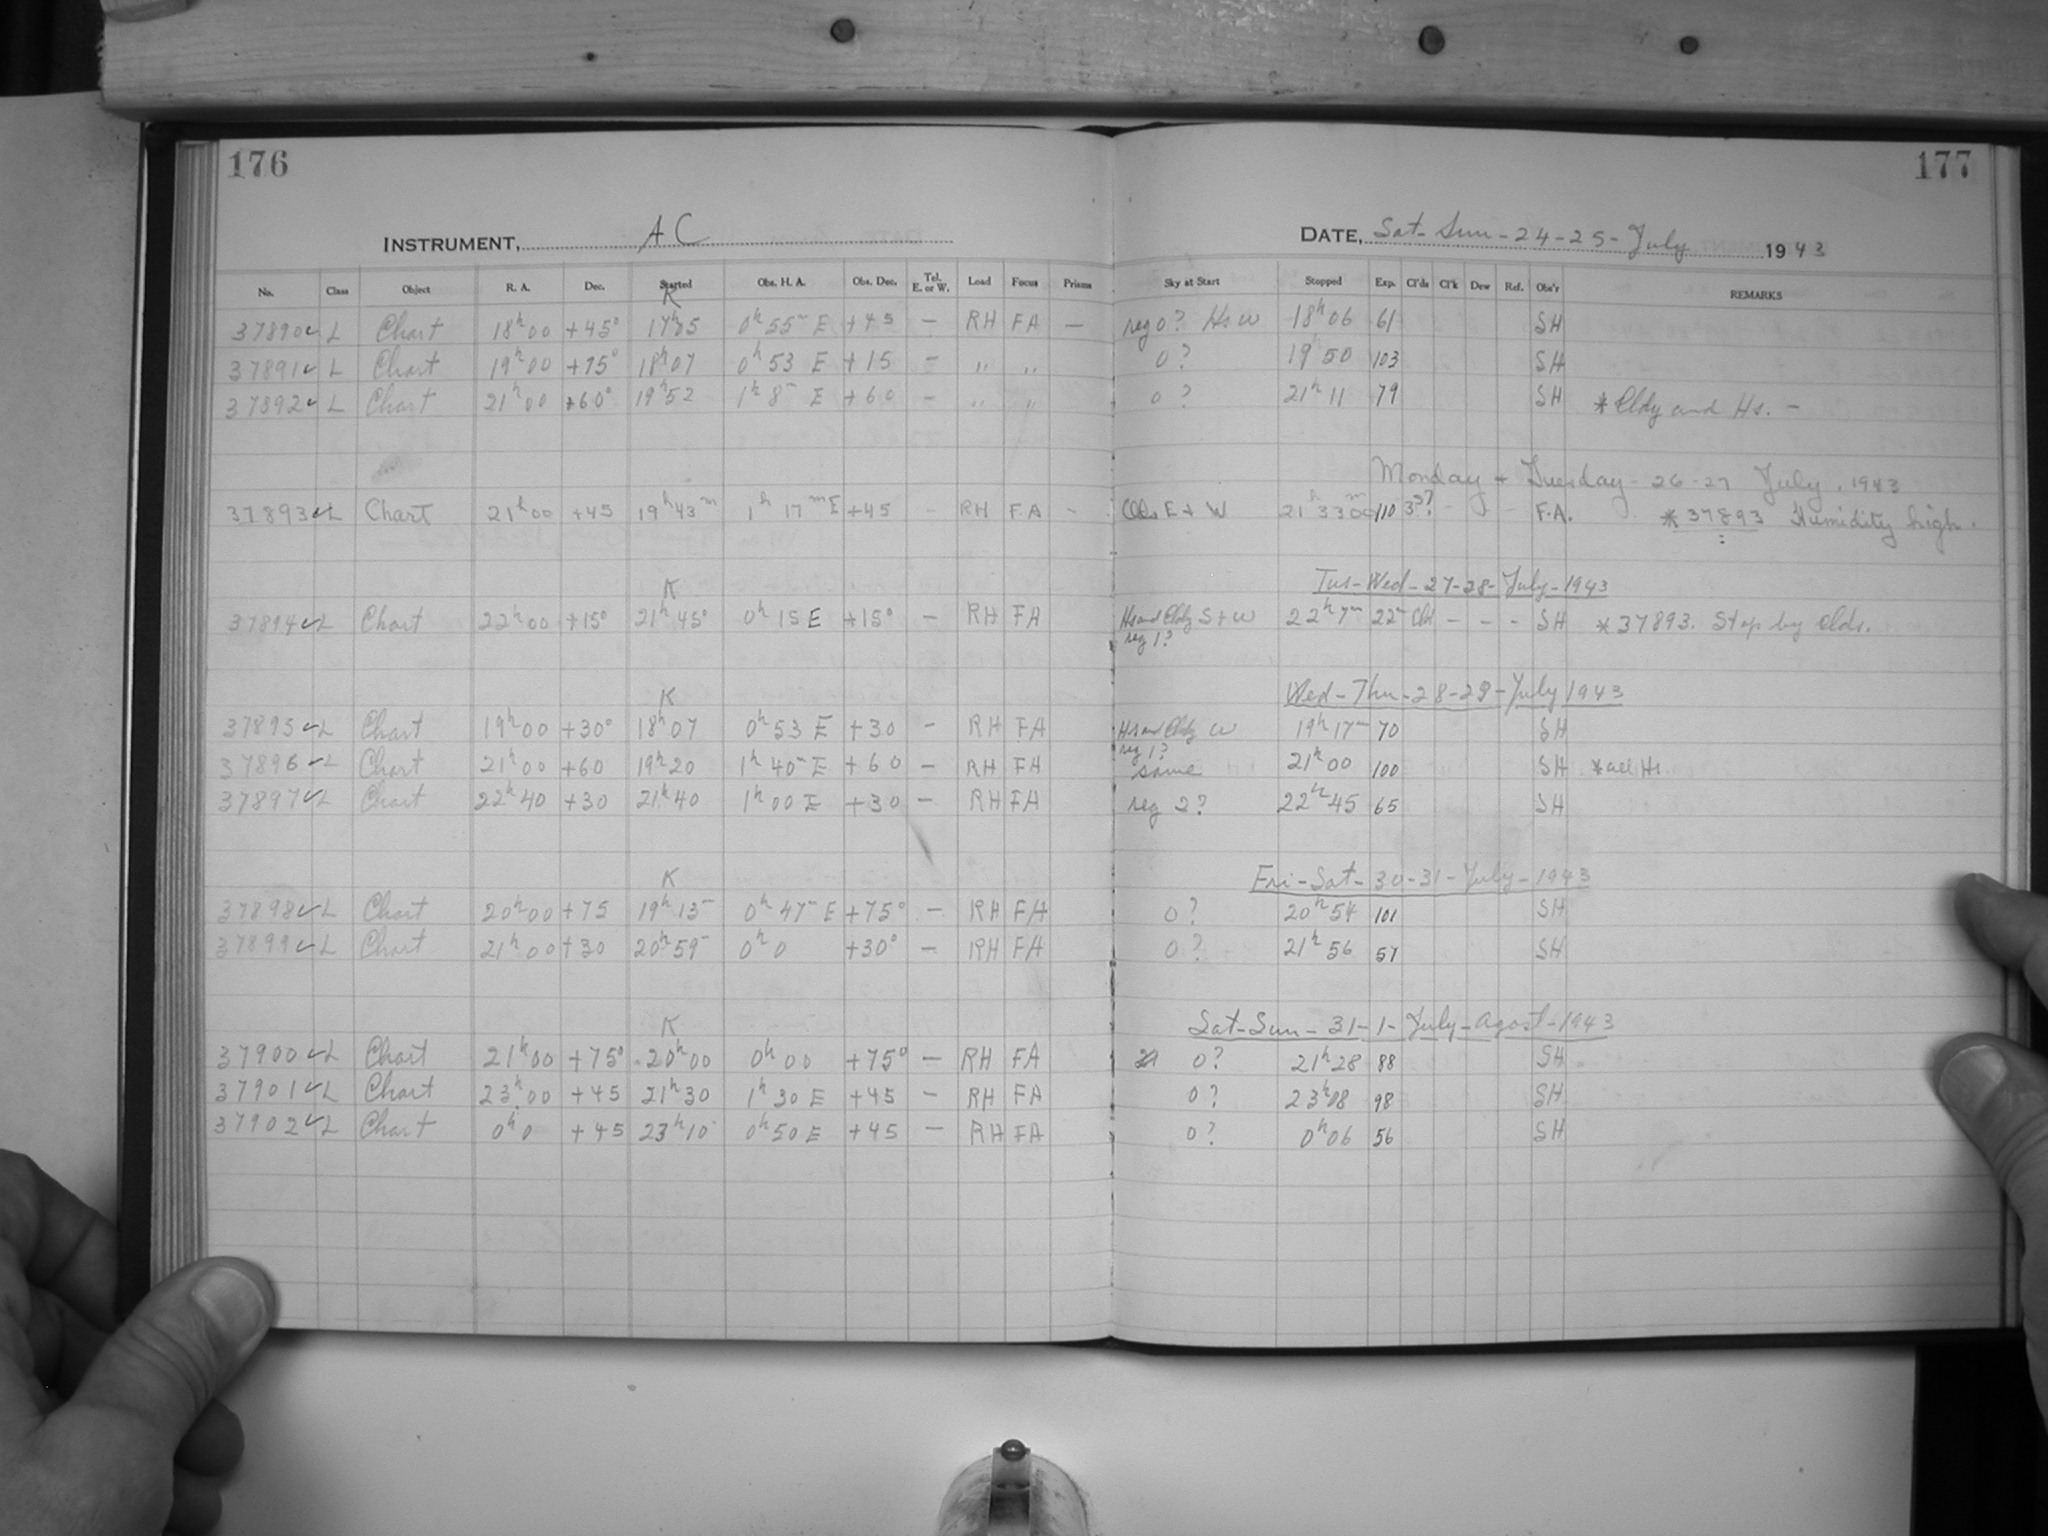 176 177
INSTRUMENT, AC DATE, Sat-Sun-24-25-July 1943
No. Class Object R. A. Dec. Started Obs. H. A. Obs. Dec. Tel. E. or W. Load Focus Prisms Sky at Start Stopped Exp. Cl'ds Cl'k Dew Ref. Obs'r REMARKS
K
37890 ✓ L Chart 18h00 +45° 17h05 0h55m E +45 — RH FA — seg 0? Hs W 18h06 61 SH
37891 ✓ L Chart 19h00 +75° 18h07 0h53 E +15 — " " 0? 19h50 103 SH
37892 ✓ L Chart 21h00 +60° 19h52 1h8m E +60 — " " 0? 21h11 79 SH * Cldy and Hs. —
Monday + Tuesday - 26-27 July, 1943
37893 ✓ L Chart 21h00 +45 19h43m 1h17mE +45 - RH FA - Clds E + W 110 3? - - - F.A. * 37893 Humidity high.
K
Tus-Wed-27-28-July-1943
37894 ✓ L Chart 22h00 +15° 21h45° 0h15 E +15° — RH FA Hs and Cldy S + W 22h7m 22m Cld - - - SH * 37893. Stop by Clds.
seg 1?
K
Wed-Thu-28-29-July 1943
37895 ✓ L Chart 19h00 +30° 18h07 0h53 E +30 — RH FA Hs and Cldy W 19h17m 70 SH
seg 1?
37896 ✓ L Chart 21h00 +60 19h20 1h40m E +60 — RH FA same 21h00 100 SH * all Hs.
37897 ✓ L Chart 22h40 +30 21h40 1h00 E +30 — RH FA seg 2? 22h45 65 SH
K
Fri-Sat-30-31-July-1943
37898 ✓ L Chart 20h00 +75 19h13m 0h47m E +75° — RH FA 0? 20h54 101 SH
37899 ✓ L Chart 21h00 +30 20h59m 0h0 +30° — RH FA 0? 21h56 57 SH
K
Sat-Sun-31-1-July-Agost-1943
37900 ✓ L Chart 21h00 +75° 20h00 0h00 +75° — RH FA 0? 21h28 88 SH
37901 ✓ L Chart 23h00 +45 21h30 1h30 E +45 — RH FA 0? 23h08 98 SH
37902 ✓ L Chart 0h0 +45 23h10 0h50 E +45 — RH FA 0? 0h06 56 SH